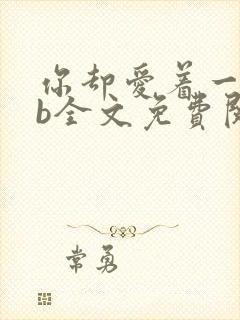 你却爱着一
b全文免费阅
常勇